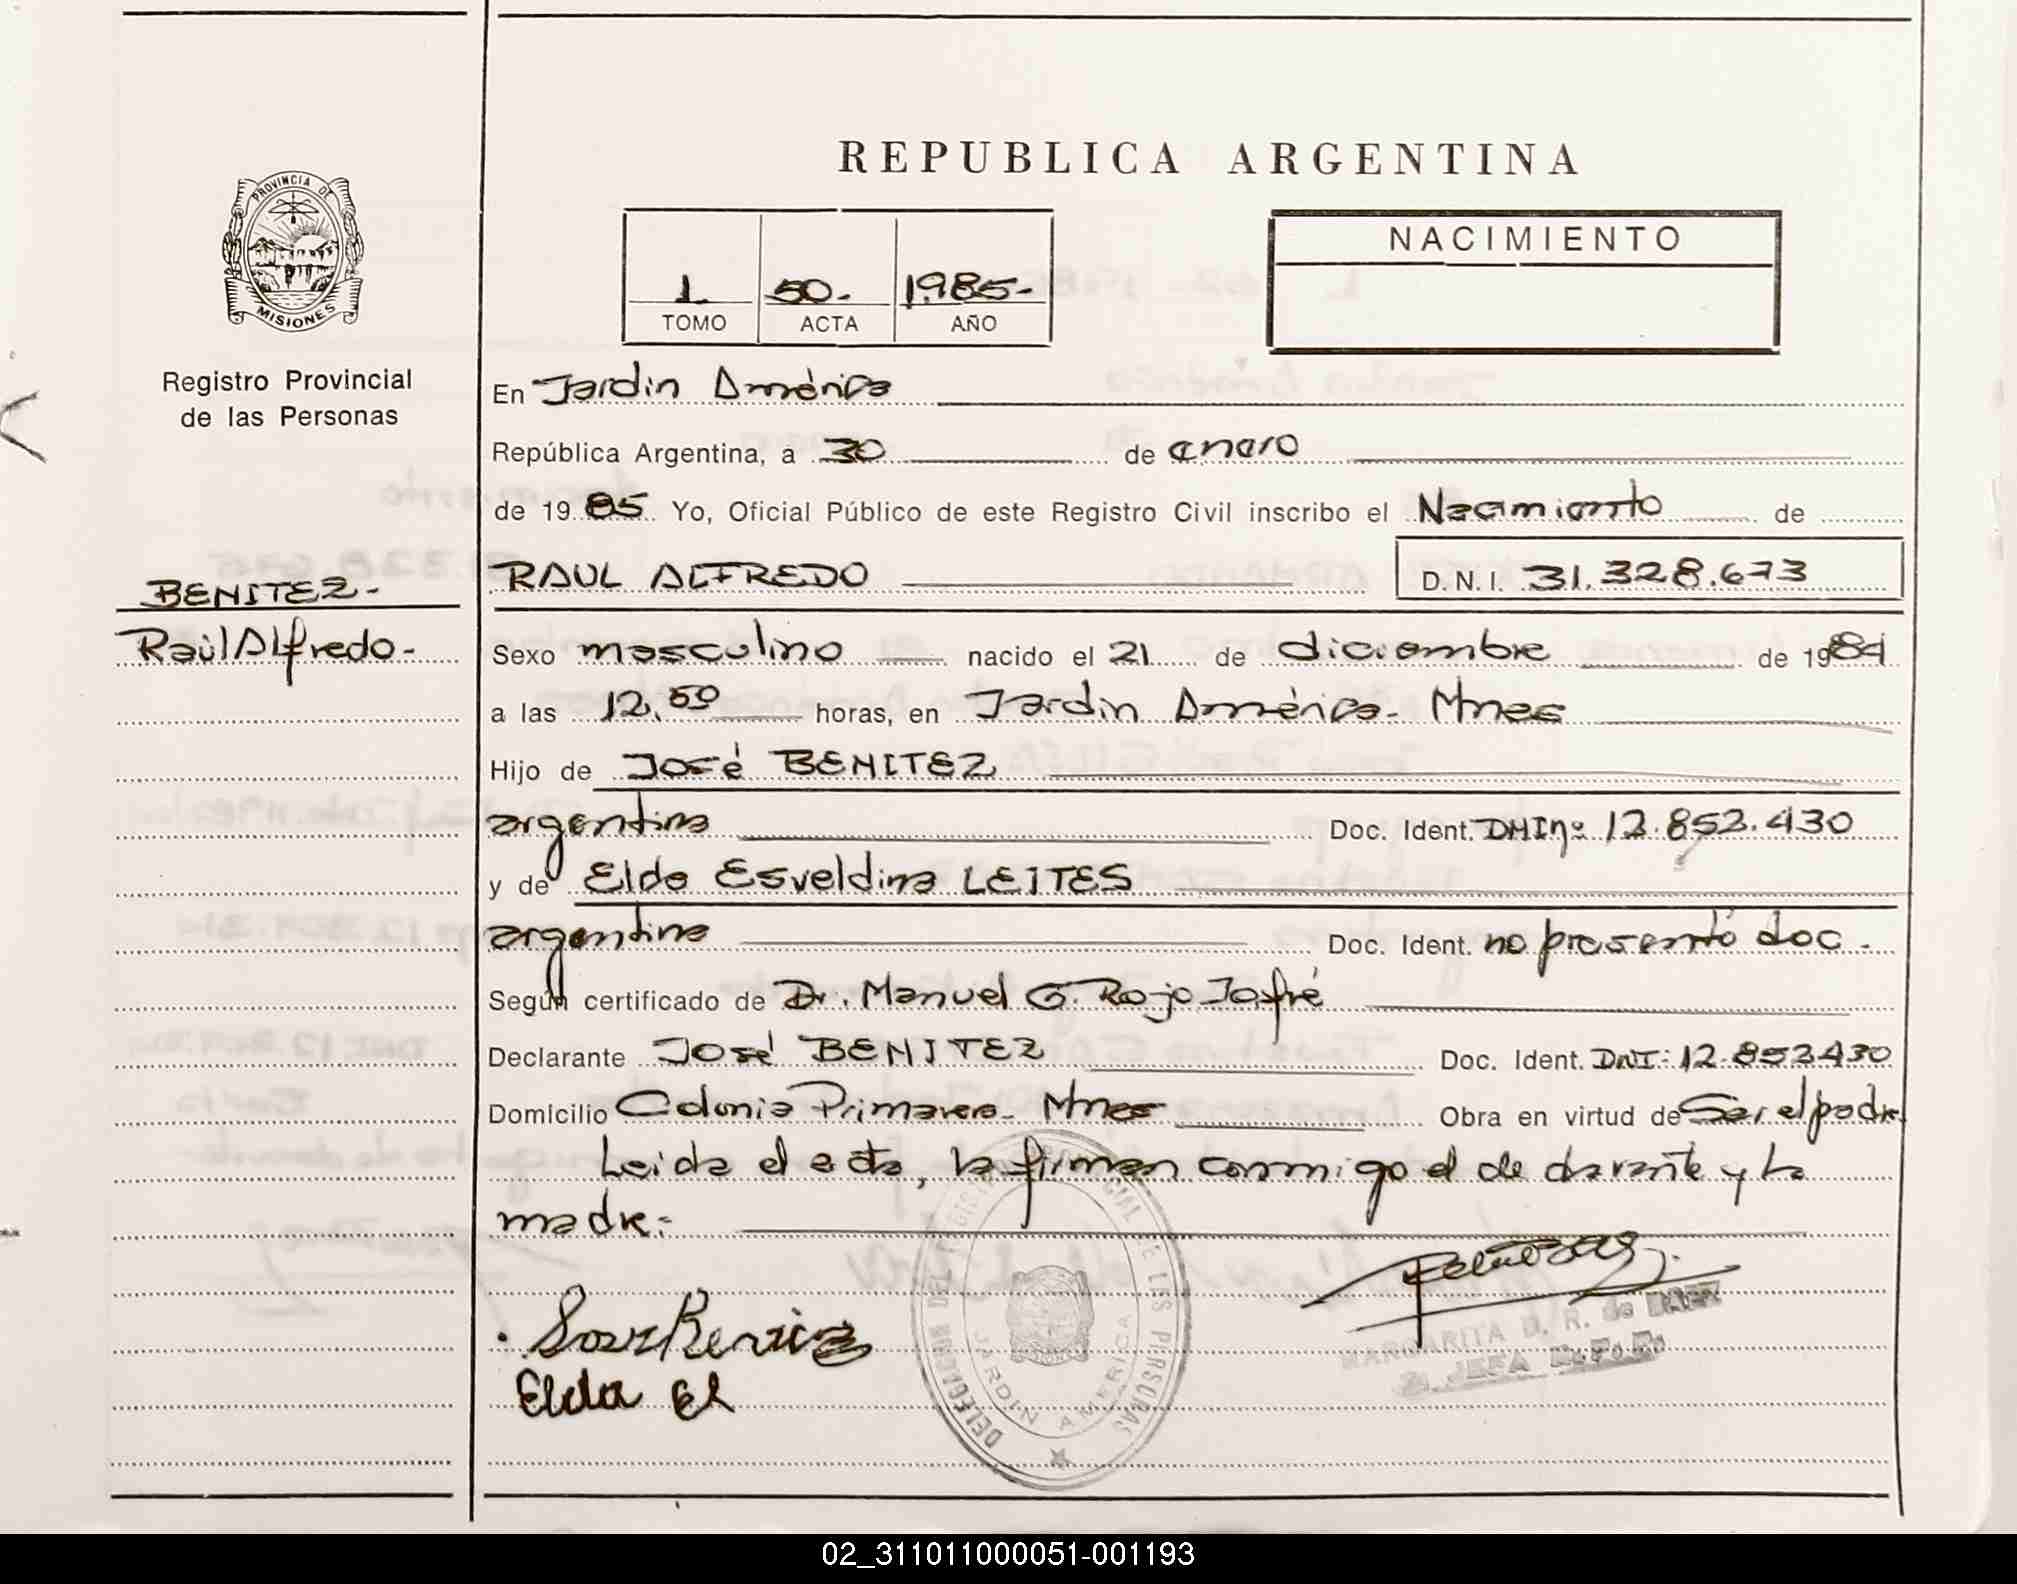 REPUBLICA ARGENTINA
PROVINCIA DE
MISIONES
Registro Provincial
de las Personas
1 50- 1.985-
TOMO ACTA AÑO
NACIMIENTO
En Jardin América
República Argentina, a 30 de enero
de 1985 Yo, Oficial Público de este Registro Civil inscribo el Nacimiento de
BENITEZ-
RAUL ALFREDO D.N.I. 31.328.673
Raúl Alfredo-
Sexo masculino nacido el 21 de diciembre de 1984
a las 12,50 horas, en Jardin América- Mnes
Hijo de José BENITEZ
argentina Doc. Ident. DNI nº 12.852.430
y de Elda Esveldina LEITES
argentina Doc. Ident. no presentó doc.
Según certificado de Dr. Manuel G. Rojo Jofré
Declarante José BENITEZ Doc. Ident. DNI: 12.852430
Domicilio Colonia Primavera- Mnes Obra en virtud de Ser el padre
Leida el acta, la firman conmigo el declarante y la
madre:-
Elda El
DELEGACION DEL REGISTRO PROVINCIAL DE LAS PERSONAS
JARDIN AMERICA
MARGARITA D. R. de BAEZ
JEFA
02_311011000051-001193